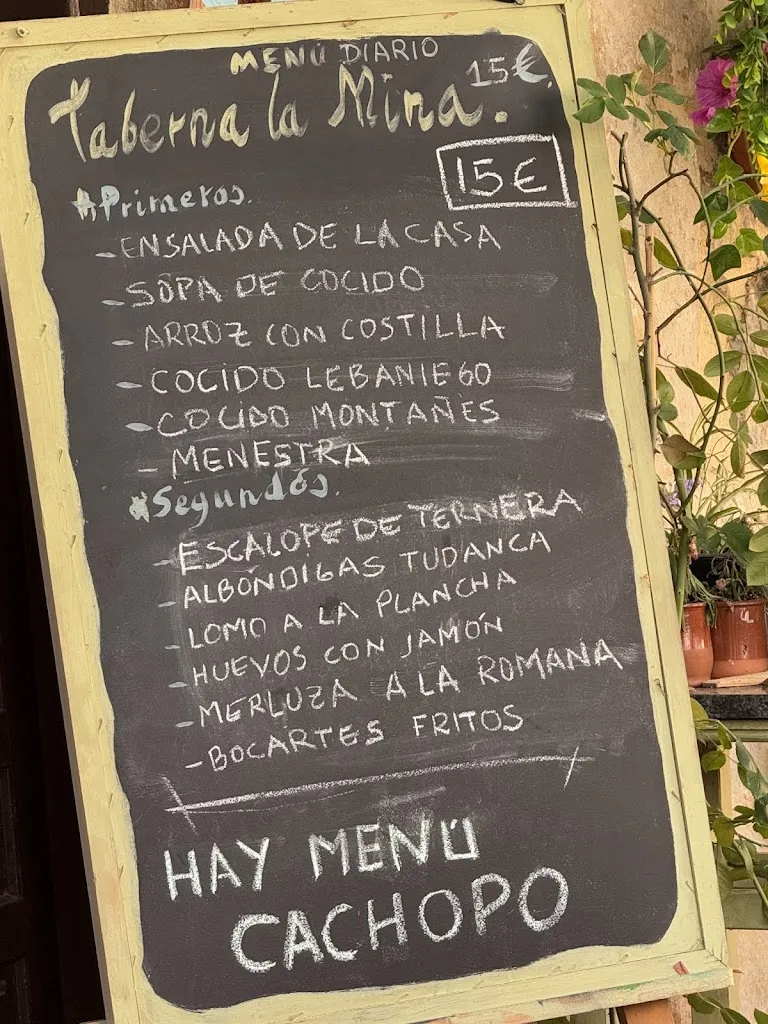 MENÚ DIARIO 15€
Taberna la Mina.
15€
Primeros.
- ENSALADA DE LA CASA
- SOPA DE COCIDO
- ARROZ CON COSTILLA
- COCIDO LEBANIEGO
- COCIDO MONTAÑES
- MENESTRA
Segundos.
- ESCALOPE DE TERNERA
- ALBÓNDIGAS TUDANCA
- LOMO A LA PLANCHA
- HUEVOS CON JAMÓN
- MERLUZA A LA ROMANA
- BOCARTES FRITOS
HAY MENÚ
CACHOPO